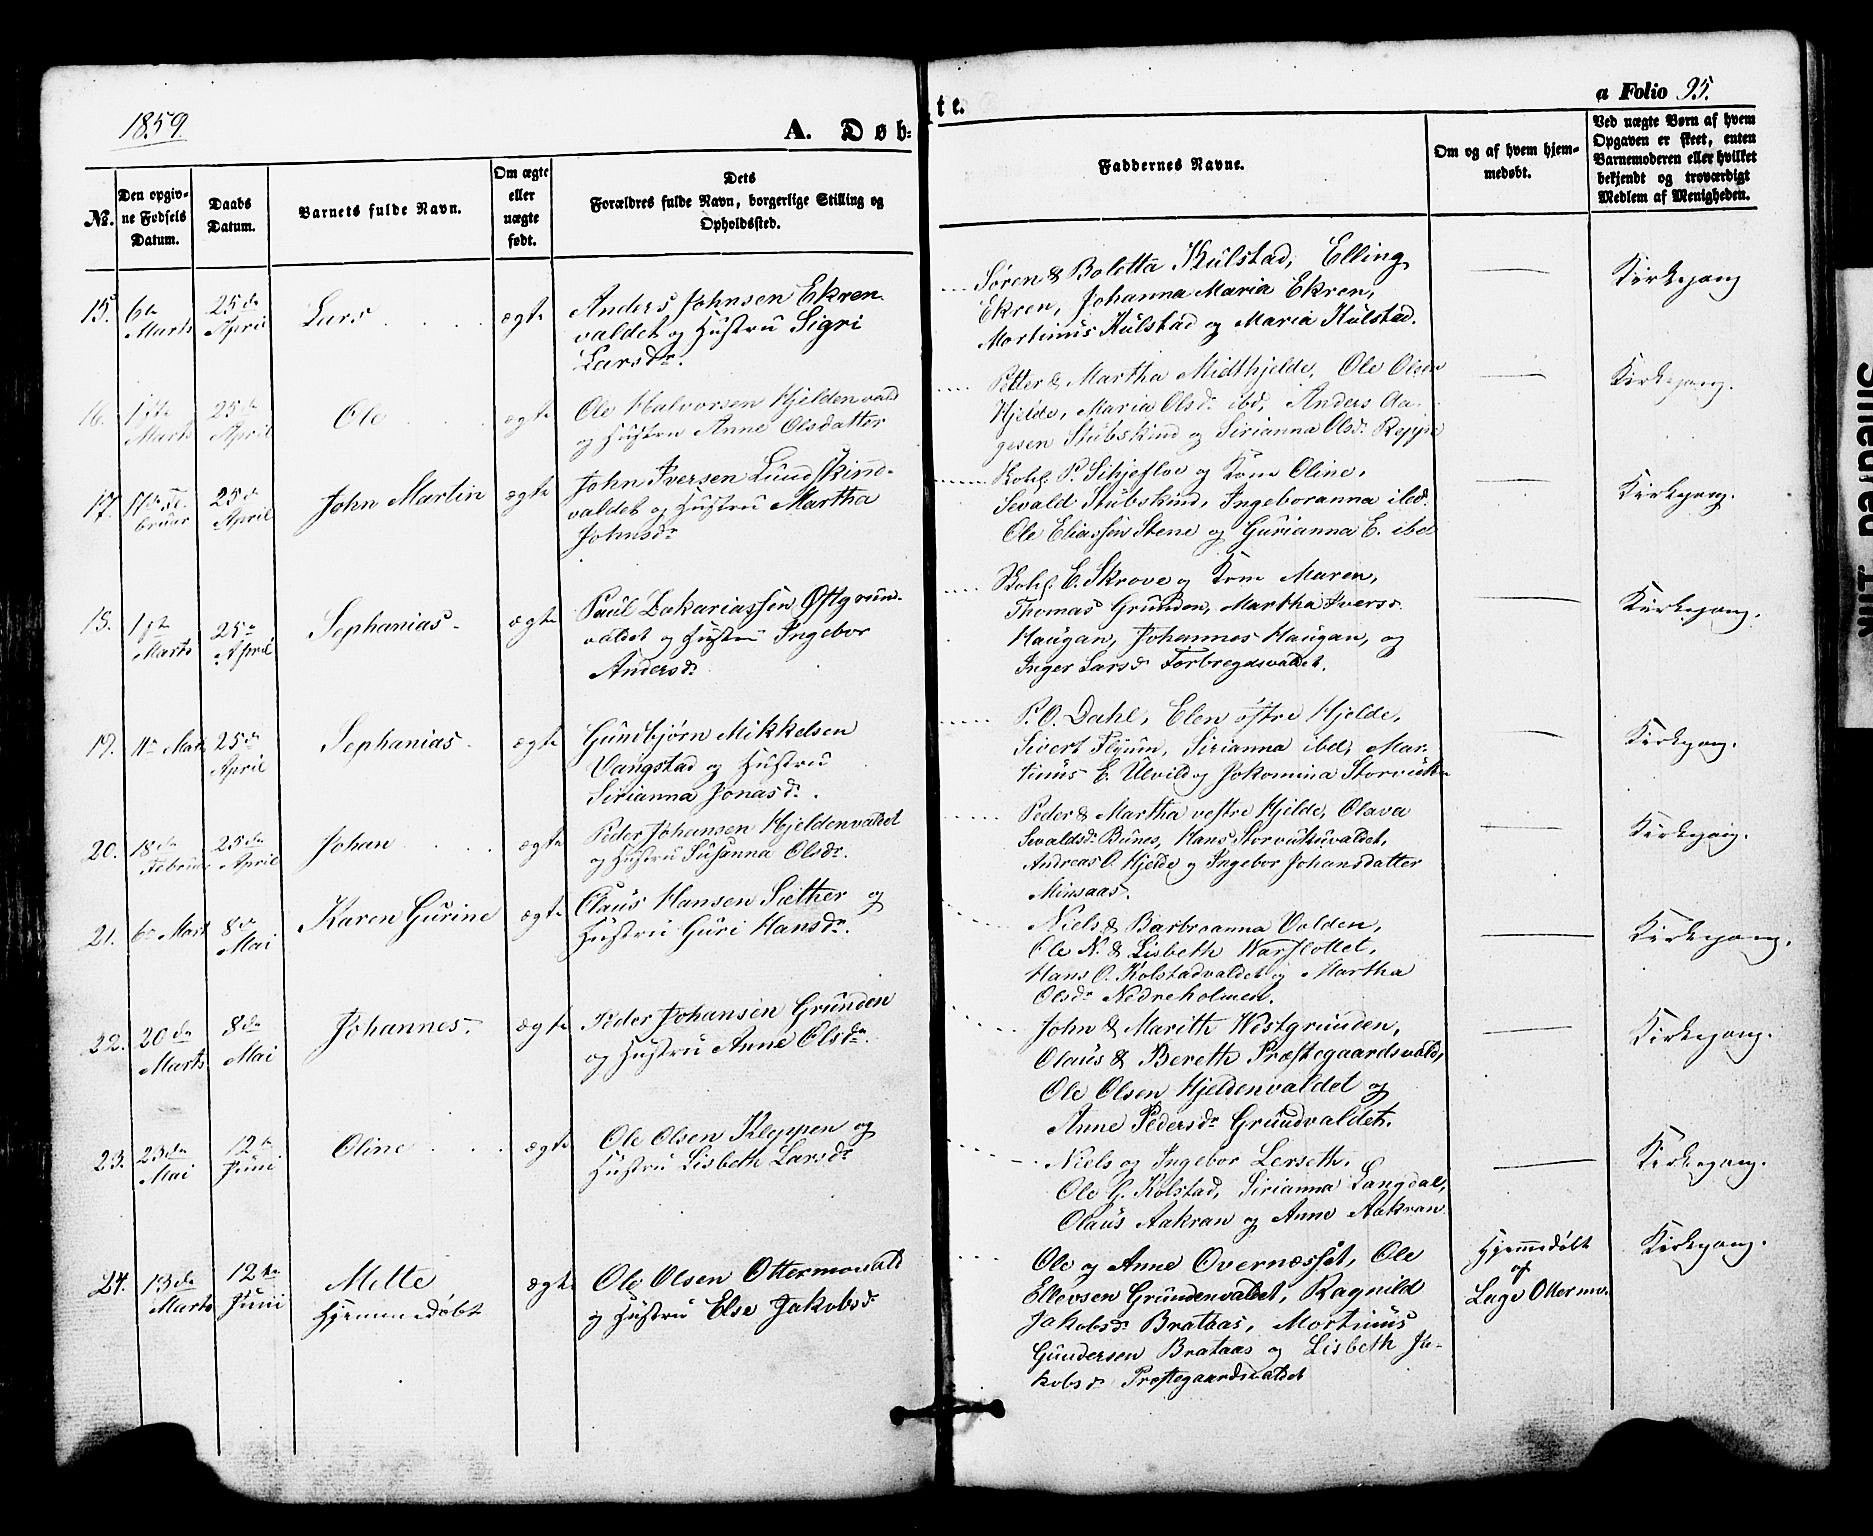 1859.
A. Døb-
te.
a Folio 95.
No.
Den opgiv-
ne Fødsels
Datum.
Daabs
Datum.
Barnets fulde Navn.
Om ægte
eller
uægte
født.
Dets
Forældres fulde Navn, borgerlige Stilling og
Opholdssted.
Faddernes Navne.
Om og af hvem hjem-
medøbt.
Ved uægte Børn af hvem
Opgaven er skeet, enten
Barnemoderen eller hvilket
bekjendt og troværdigt
Medlem af Menigheden.
15. 6te Marts
25de April
Lars
ægte
Anders Johnsen Ekren-
valdet og Hustru Sigri
Larsdr.
Søren & Boletta Kulstad, Elling
Ekren, Johanna Maria Ekren,
Mortinus Kulstad og Maria Kulstad.
Kirkegang
16. Marts
25de April
Ole
ægte
Ole Halvorsen Hjeldenvald
og Hustru Anne Olsdatter
Petter & Martha Midthjelde, Ole Olsen
Hjelde, Maria Olsdr ibd, Anders Aa-
gesen Stubskind og Sirianna Olsdr
Kirkegang.
17. Februar
25de April
John Martin
ægte
John Iversen Lundskind-
valdet og Hustru Martha
Johnsdr
P. Schjefloe og Kone Oline,
Sevald Stubskind, Ingeboranna ibd.
Ole Eliassen Stene og Gurianna E. ibd
Kirkegang.
18. 1ste Marts
25de April
Sephanias.
ægte
Paul Zakariassen Østgrun-
valdet og Hustru Ingebor
Andersdr
E. Skrove og Kone Maren,
Thomas Grunden, Martha Iversdr
Haugan, Johannes Haugan, og
Inger Larsdr Forbregdsvaldet.
Kirkegang.
19. Marts
25de April
Sephanias.
ægte
Gunbjørn Mikkelsen
Vangstad og Hustru
Sirianna Jonasdr.
P. O. Dahl, Elen østre Hjelde,
Sivert Flyum, Sirianna ibd, Mar-
tinus E. Ulvild og Jokomina Storvuku
Kirkegang.
20. 18de Februar
25de April
Johan
ægte
Peder Johansen Hjeldenvaldet
og Hustru Susanna Olsdr.
Peder & Martha vestre Hjelde, Olava
Sevaldsdr Bunes, Hans Storvukuvaldet,
Andreas O. Hjelde og Ingebor Johansdatter
Minsaas.
Kirkegang.
21. 6te Mart
8de Mai
Karen Gurine
ægte
Claus Hansen Sæther og
Hustru Guri Hansdr.
Niels & Barbroanna Volden,
Ole N. & Lisbeth Warslottet,
Hans O. Kolstadvaldet og Martha
Olsdr Nedreholmen.
Kirkegang.
22. 20de Marts
8de Mai
Johannes.
ægte
Peder Johansen Grunden
og Hustru Anne Olsdr.
John & Marith Westgrunden,
Olaus & Bereth Præstegaardsvald,
Ole Olsen Hjeldenvaldet og
Anne Pedersdr Grundvaldet.
Kirkegang.
23. 23de Mai
12te Juni
Oline
ægte
Ole Olsen Kleppen og
Hustru Lisbeth Larsdr
Niels og Ingebor Lerseth,
Ole G. Kolstad, Sirianna Langdal,
Olaus Aakran og Anne Aakran
Kirkegang.
24. 13de Marts
12te Juni
Mette
Hjemmedøbt
ægte
Ole Olsen Ottermovald
og Hustru Else Jakobsdr
Ole og Anne Overnæsset, Ole
Ellevsen Grundenvaldet, Ragnild
Jakobsdr Brataas, Mortinus
Gundersen Brataas og Lisbeth Ja-
kobsdr Præstegaardsvaldet
Hjemmedøbt
af
Lage Ottermo.
Kirkegang.